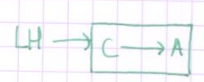 LH → C → A